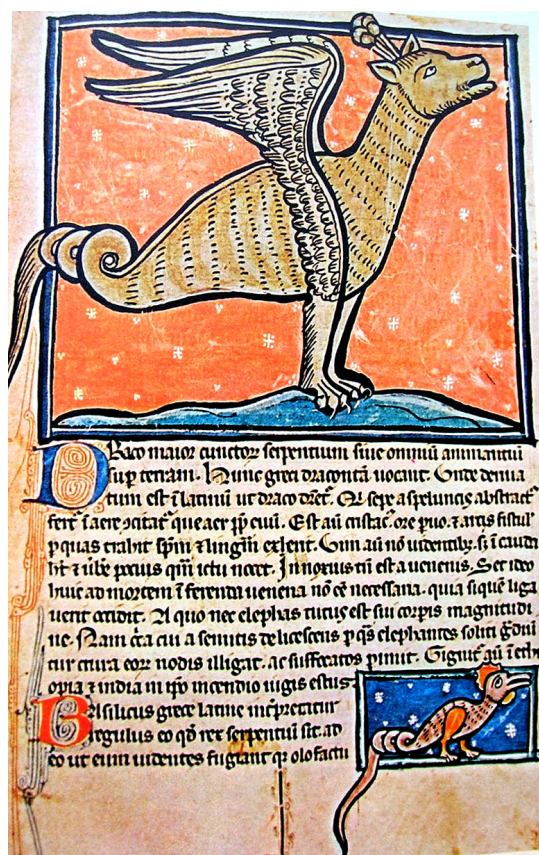 Draco maior cunctor serpentium siue omniū animantiū
sup terram. Hunc greci draconta uocant. Unde deriua
tum est ī latinum ut draco dicet. Qi sepe a speluncis abstract
fert ī aere ꝯcitat que aer pp eum. Est aū cristat ore paruo. ⁊ artis fistul
p quas trahit spm ⁊ linguā exerent. Uim aū nō ī dentibꝫ. sꝫ ī cauda
ht ⁊ ube pocius qm ictu nocet. Innoxius tn̄ est a uenenis. Set ideo
huic ad mortem ī ferenda uenena nō ēe necessaria. quia siquē liga
uerit occidit. A quo nec elephas tutus est sui corpis magnitudi
ne. Nam cca a semitis delitescens p qs elephantes soliti gdiūt
tur crura eorꝝ nodis illigat. ac suffocatos pimit. Gignit aū ī ethi
opia ⁊ india in ipo incendio iugis estus.
Basiliscus grece latine inpretatur
regulus eo qd rex serpentiū sit. ad
eo ut eum uidentes fugiant qr olofactu